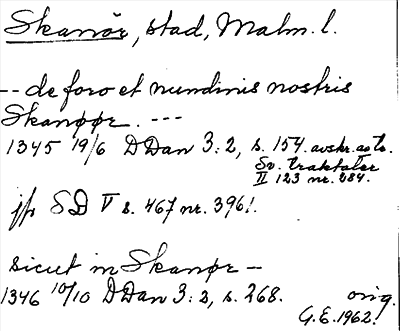 Skanör, stad, Malm. l.
-- de foro et nundinis nostris
Skanøør. ---
1345 19/6 D Dan 3:2, s. 154. avskr. ao to.
Sv. traktater
II 123 nr. 284.
jfr SD V s. 467 nr. 3961.
sicut in Skanør —
1346 10/10 D Dan 3:2, s. 268. orig.
G.E. 1962